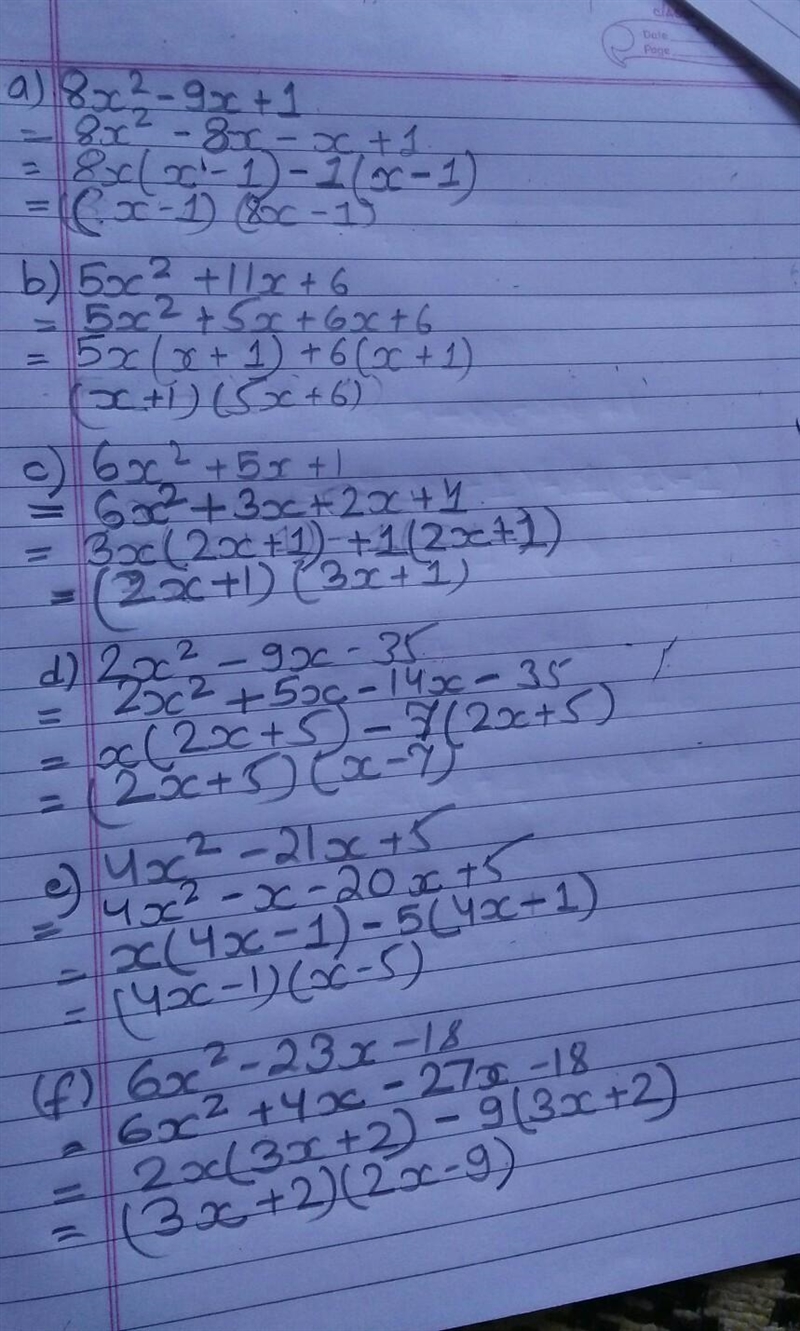 Date
Page
a) 8x² - 9x + 1
= 8x² - 8x - x + 1
= 8x(x - 1) - 1(x - 1)
= (x - 1) (8x - 1)
b) 5x² + 11x + 6
= 5x² + 5x + 6x + 6
= 5x(x + 1) + 6(x + 1)
(x + 1) (5x + 6)
c) 6x² + 5x + 1
= 6x² + 3x + 2x + 1
= 3x(2x + 1) + 1(2x + 1)
= (2x + 1) (3x + 1)
d) 2x² - 9x - 35
= 2x² + 5x - 14x - 35
= x(2x + 5) - 7(2x + 5)
= (2x + 5) (x - 7)
e) 4x² - 21x + 5
= 4x² - x - 20x + 5
= x(4x - 1) - 5(4x - 1)
= (4x - 1) (x - 5)
(f) 6x² - 23x - 18
= 6x² + 4x - 27x - 18
= 2x(3x + 2) - 9(3x + 2)
= (3x + 2) (2x - 9)